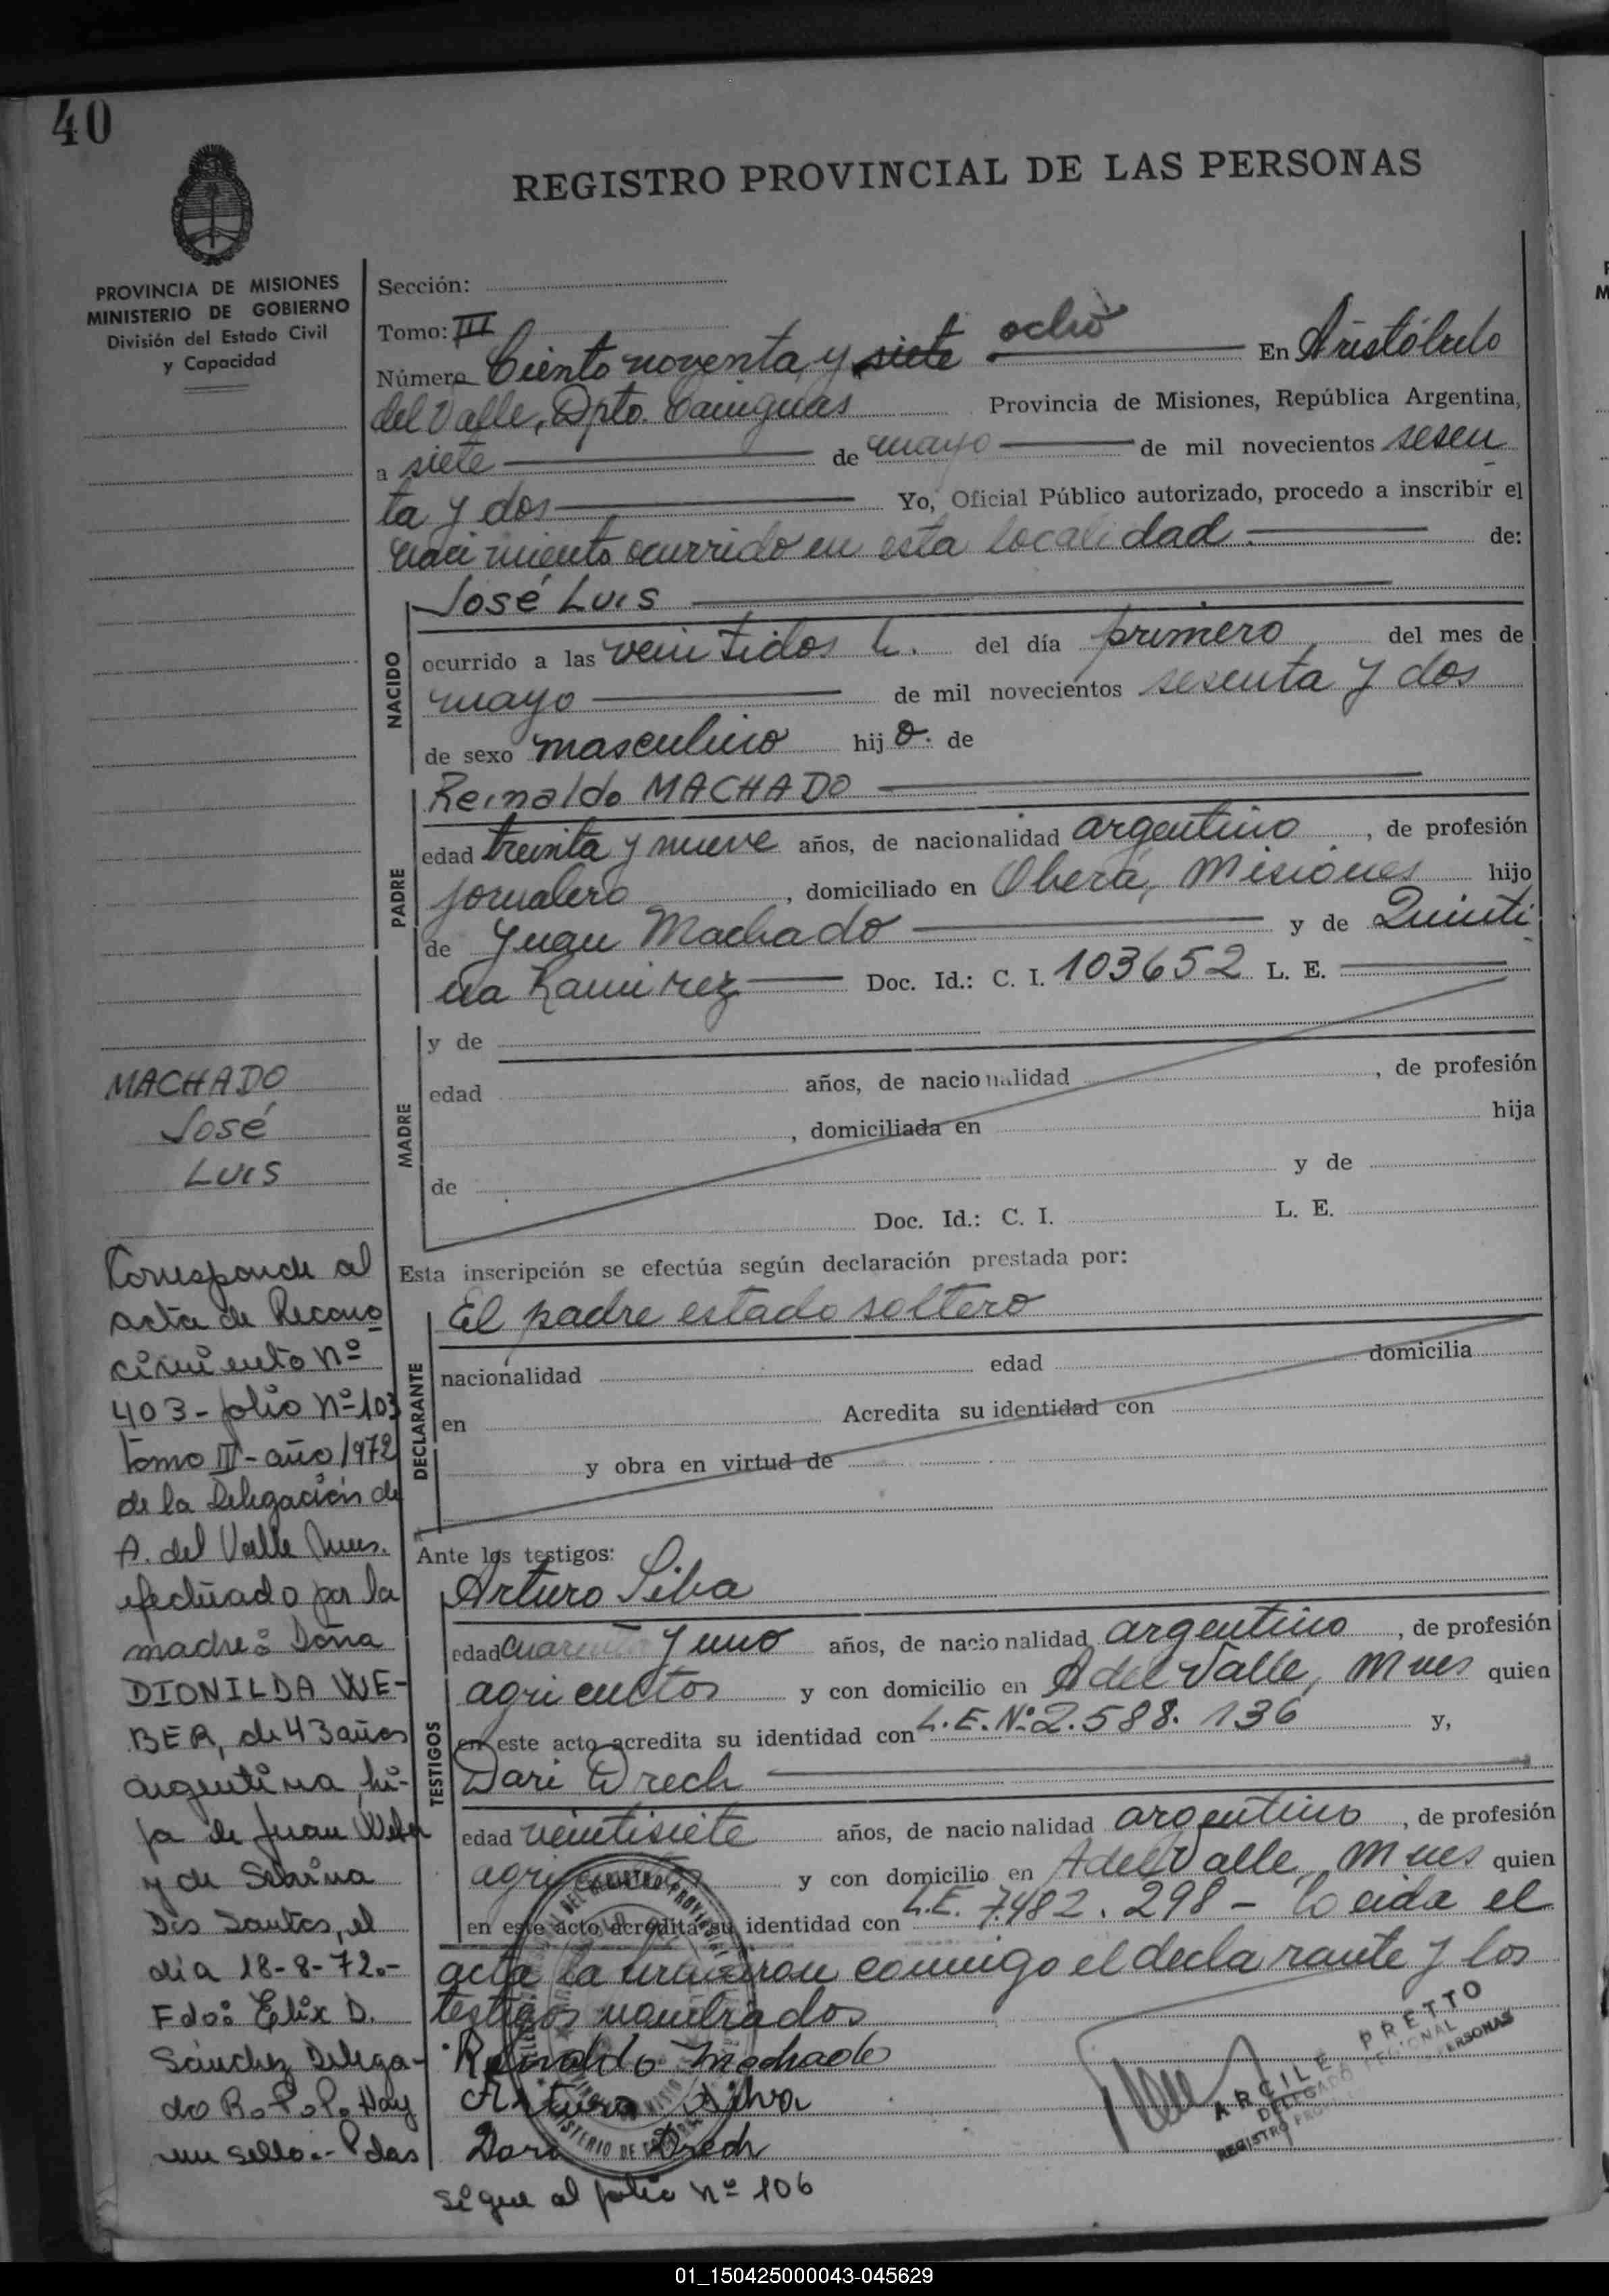 40
REGISTRO PROVINCIAL DE LAS PERSONAS
PROVINCIA DE MISIONES
MINISTERIO DE GOBIERNO
División del Estado Civil
y Capacidad
Sección:
Tomo: III
Número Ciento noventa y siete ocho En Aristóbulo
del Valle, Dpto. Cainguas Provincia de Misiones, República Argentina,
a siete de mayo de mil novecientos sesen
ta y dos Yo, Oficial Público autorizado, procedo a inscribir el
nacimiento ocurrido en esta localidad. de:
José Luis
NACIDO
ocurrido a las veintidos h. del día primero del mes de
mayo de mil novecientos sesenta y dos
de sexo masculino hijo. de
Reinaldo MACHADO
PADRE
edad treinta y nueve años, de nacionalidad argentino, de profesión
jornalero, domiciliado en Oberá, Misiones hijo
de Juan Machado y de Quinti
na Ramirez Doc. Id.: C. I. 103652 L. E.
MADRE
y de
edad años, de nacionalidad, de profesión
, domiciliada en hija
de y de
Doc. Id.: C. I. L. E.
Esta inscripción se efectúa según declaración prestada por:
El padre estado soltero
DECLARANTE
nacionalidad edad domicilia
en Acredita su identidad con
y obra en virtud de
Ante los testigos:
Arturo Silva
TESTIGOS
edad cuarenta y uno años, de nacionalidad argentino, de profesión
agricultor y con domicilio en A del Valle, Mnes quien
en este acto acredita su identidad con L.E. Nº 2.588.136 y,
Dari Drech
edad veintisiete años, de nacionalidad argentino, de profesión
agricultor y con domicilio en A del Valle, Mnes quien
en este acto acredita su identidad con L.E. 7.482.298 - Leida el
acta la firmaron conmigo el declarante y los
testigos nombrados
Reinaldo Machado
Arturo Silva
Dari Drech
Sigue al folio Nº 106
ARCILE PRETTO
DELEGADO REGIONAL
REGISTRO PROV. PERSONAS
MACHADO
José
Luis
Corresponde al
acta de Recono
cimiento Nº
403 - folio Nº 103
tomo III - año 1972
de la Delegación de
A. del Valle Mnes.
efectuado por la
madre: Doña
DIONILDA WE-
BER, de 43 años
argentina, hi-
ja de Juan Weber
y de Sebrina
Dos Santos, el
día 18-8-72.-
Fdo: Elix D.
Sánchez Delega-
do R.P.P. Hay
un sello.- Pdas
01_150425000043-045629